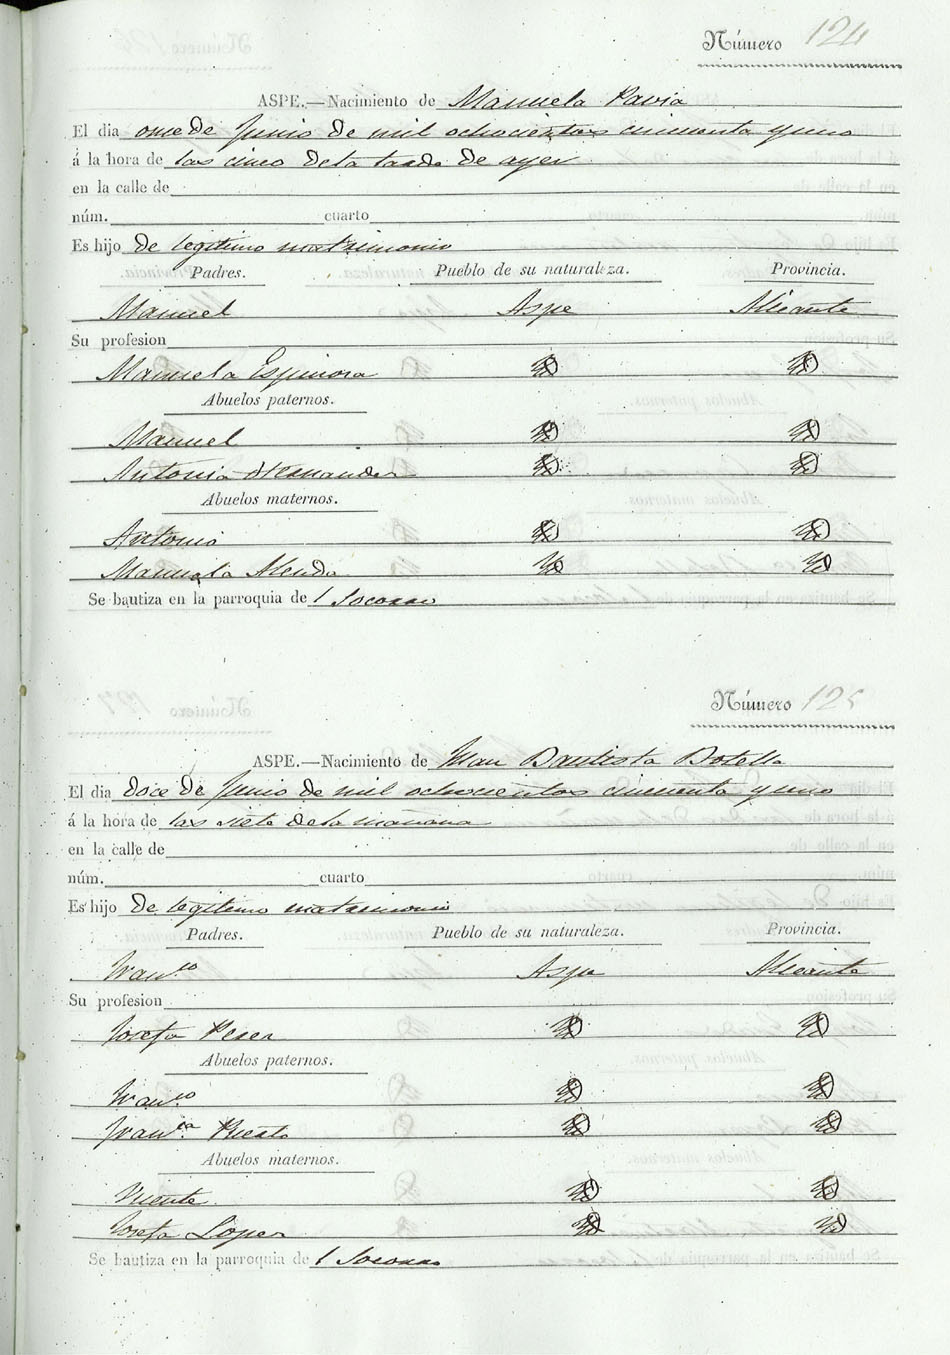 Número 124
ASPE.—Nacimiento de Manuela Pavia
El dia once de Junio de mil ochocientos cincuenta y uno
á la hora de las cinco de la tarde de ayer
en la calle de
núm. cuarto
Es hijo de legitimo matrimonio
Padres. Pueblo de su naturaleza. Provincia.
Manuel Aspe Alicante
Su profesion
Manuela Espinosa Yd Yd
Abuelos paternos.
Manuel Yd Yd
Antonia Hernandez Yd Yd
Abuelos maternos.
Antonio Yd Yd
Manuela Yd Yd
Se bautiza en la parroquia de l Socorro
Número 125
ASPE.—Nacimiento de Juan Bautista Botella
El dia doce de Junio de mil ochocientos cincuenta y uno
á la hora de las siete de la mañana
en la calle de
núm. cuarto
Es hijo de legitimo matrimonio
Padres. Pueblo de su naturaleza. Provincia.
Franco Aspe Alicante
Su profesion
Josefa Perez Yd Yd
Abuelos paternos.
Franco Yd Yd
Franca Yd Yd
Abuelos maternos.
Vicente Yd Yd
Josefa Lopez Yd Yd
Se bautiza en la parroquia de l Socorro